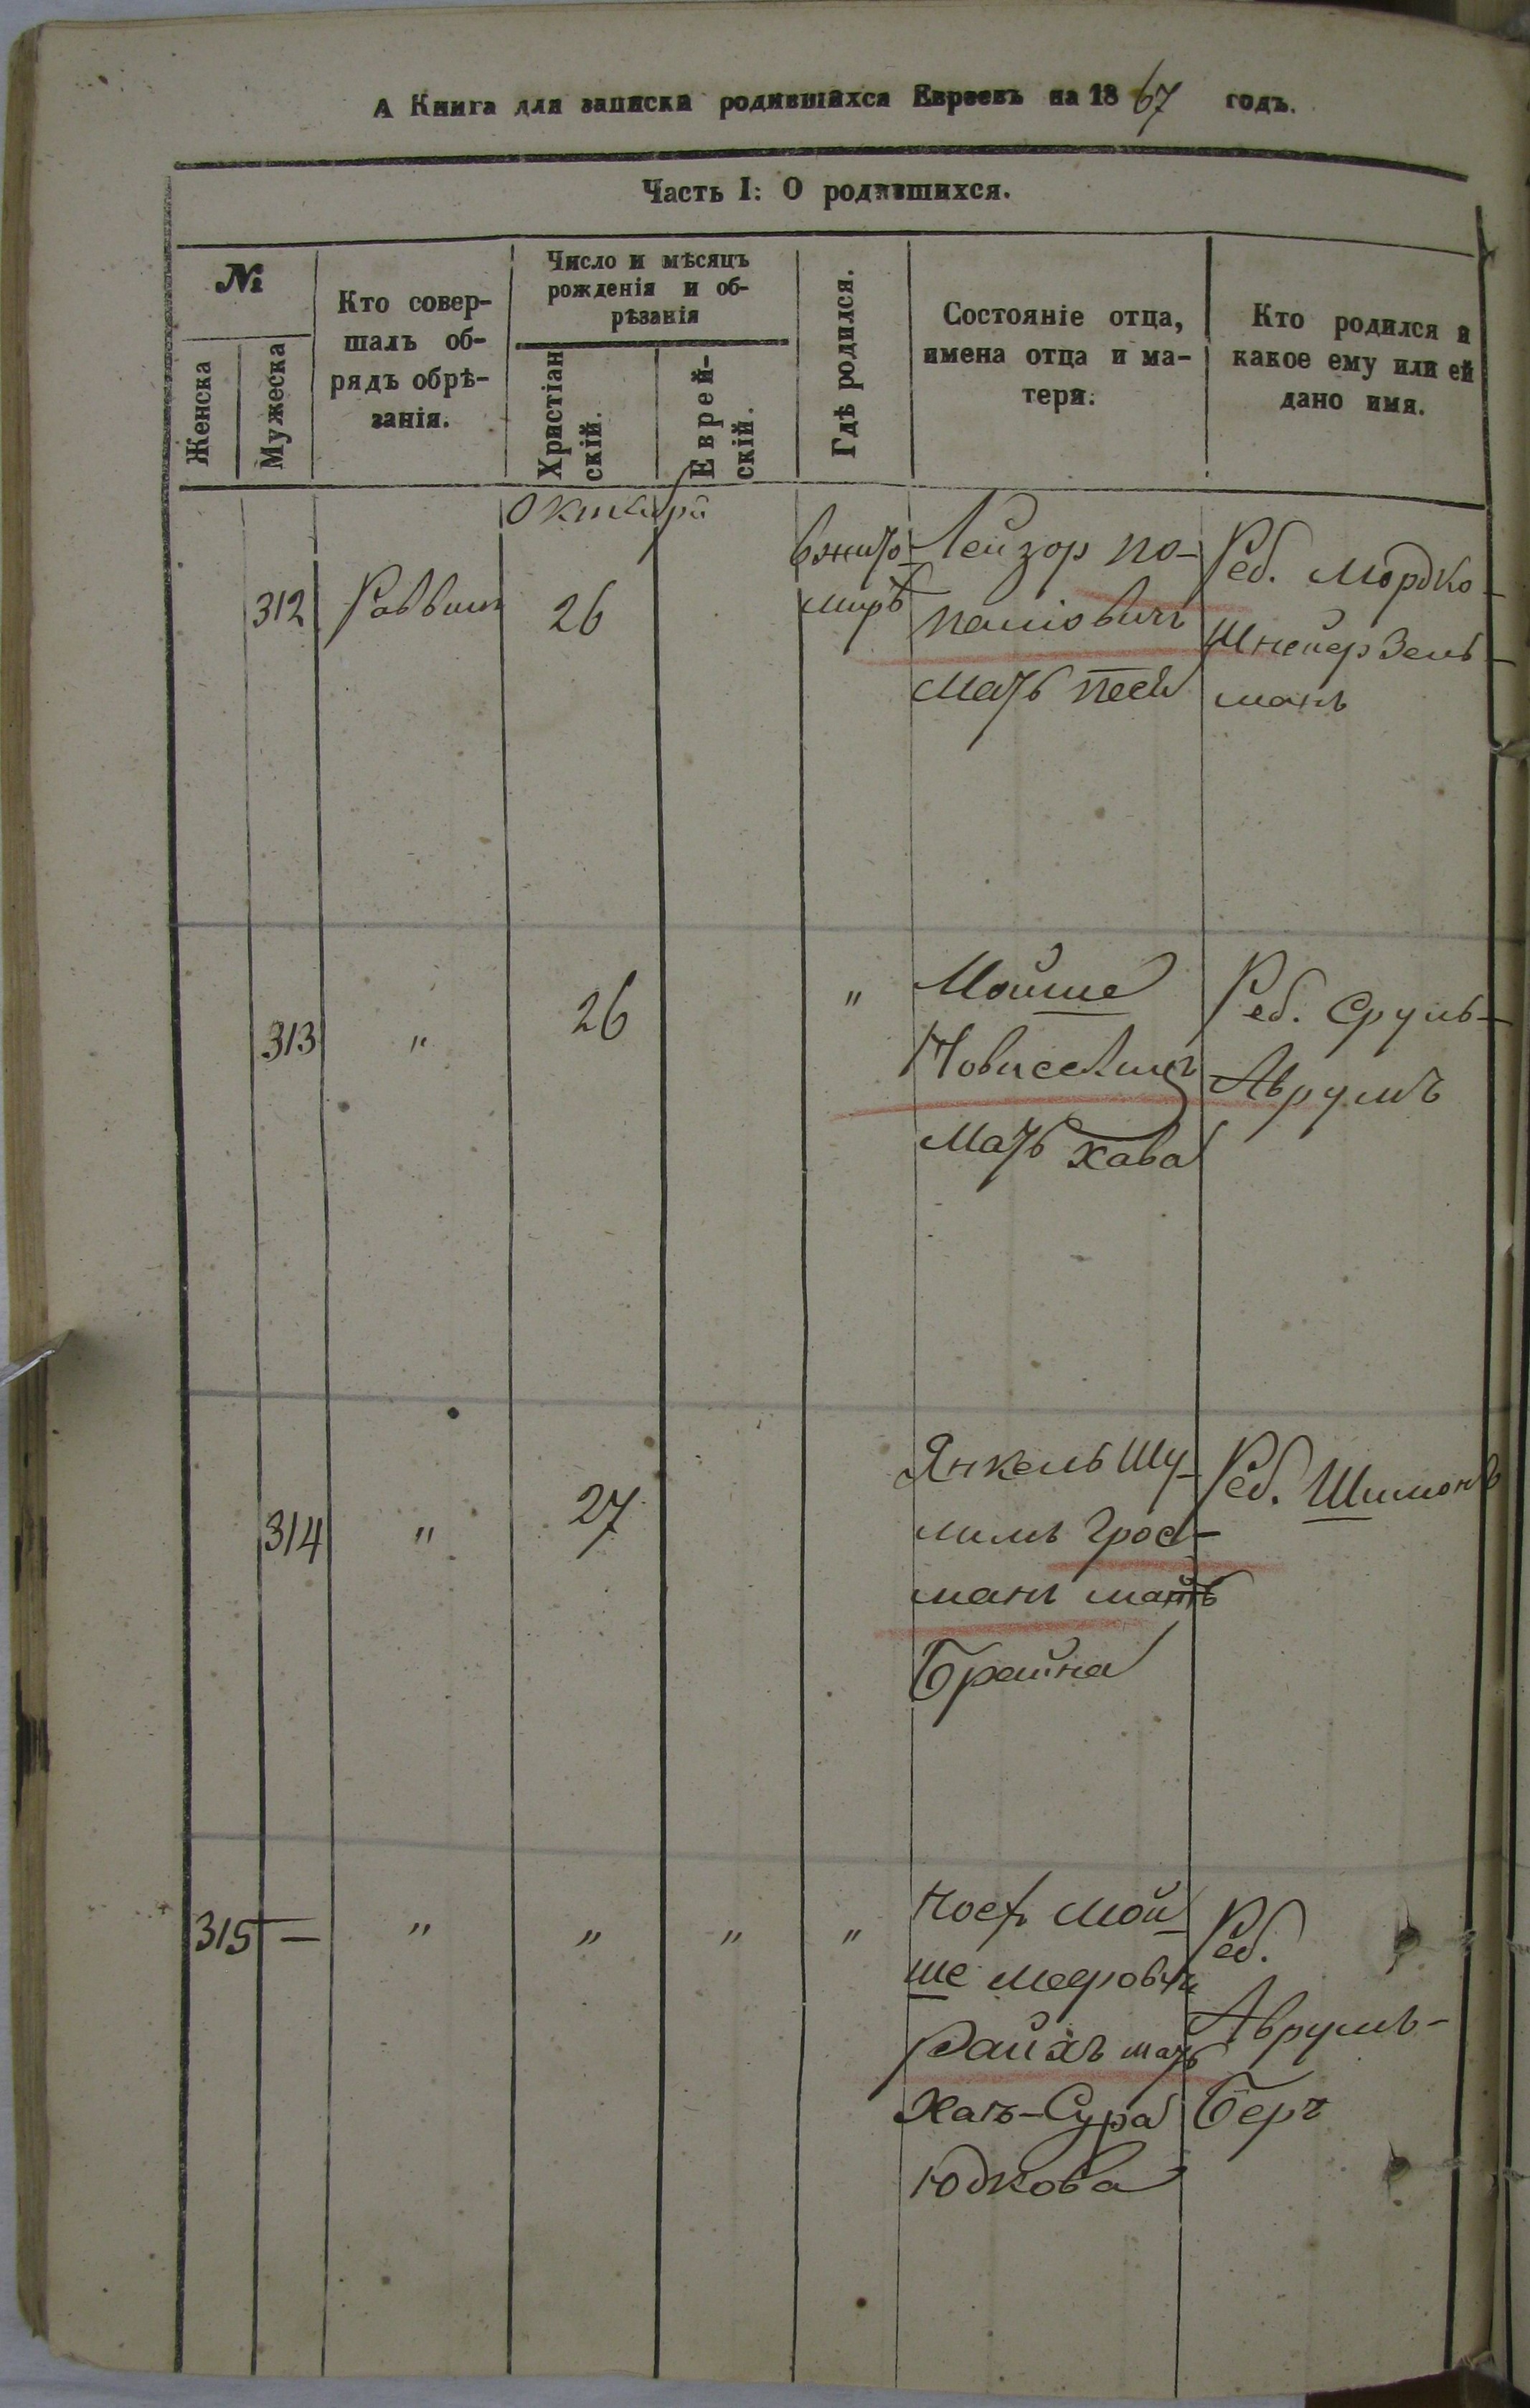 А Книга для записки родившихся Евреевъ на 1867 годъ.
Часть I: О родившихся.
№
Женска
Мужеска
Кто совер-
шалъ об-
рядъ обрѣ-
занія.
Число и мѣсяцъ
рожденія и об-
рѣзанія
Христіан
скій.
Еврей-
скій.
Гдѣ родился.
Состояніе отца,
имена отца и ма-
тери.
Кто родился и
какое ему или ей
дано имя.
Октября
312
Раввинъ
26
в жито-
мирѣ
Лейзор По-
мать Песя
Реб. Мордко-
Шнейер Зель-
манъ
313
"
26
"
Мойше
мать Хава
Реб. Сруль-
Аврумъ
314
"
27
Янкель Шу-
лимъ Грос-
манъ мать
Брайна
Реб. Шимонъ
315 —
"
"
"
"
Иосъ Мой-
ше
Райхъ мать
Ханъ-Сура
Юдкова
Реб.
Аврумъ-
Беръ